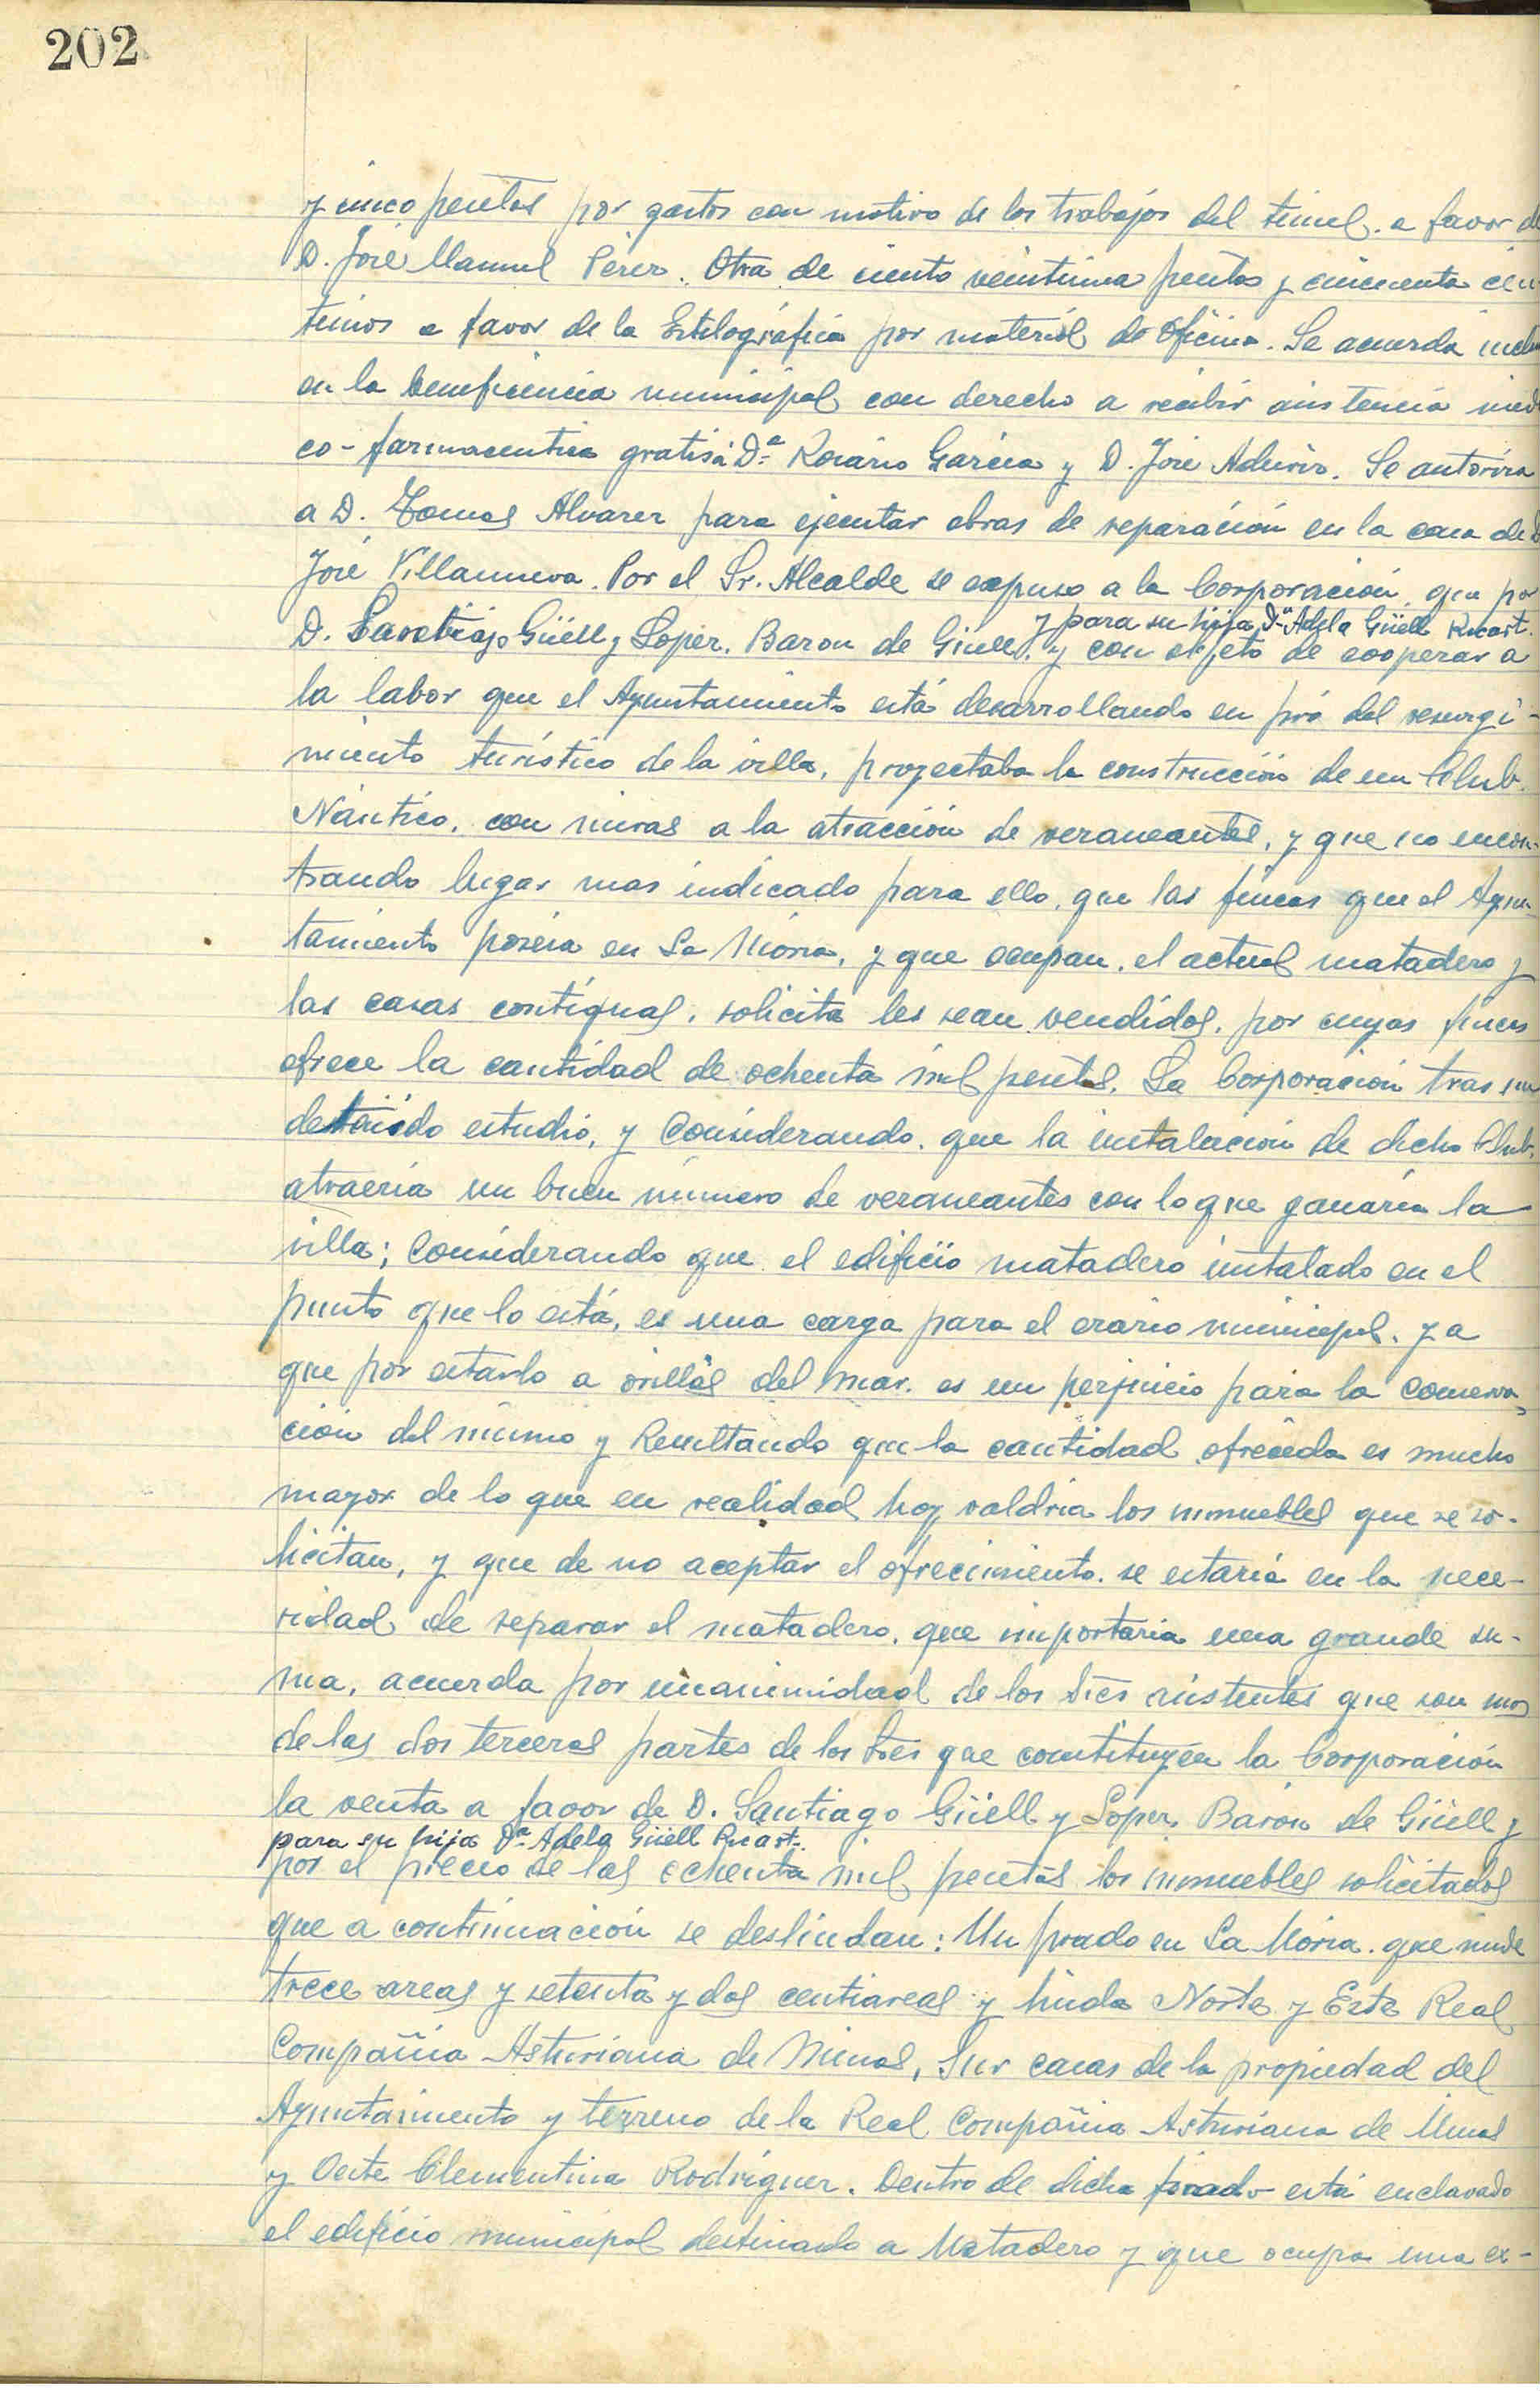 202
y cinco pesetas por gastos con motivo de los trabajos del tunel. a favor de
D. José Manuel Pérez. Otra de ciento veintiuna pesetas y cincuenta cén
timos a favor de la Estilográfica por material de oficina. Se acuerda
en la beneficencia municipal con derecho a recibir asistencia médi
co-farmaceutica gratis a Dª Rosario García y D. José. Se autoriza
a D. Tomas Alvarez para ejecutar obras de reparación en la casa de D
José Villanueva. Por el Sr. Alcalde se expuso a la Corporación, que por
y para su hija Dª Adela Güell Ricart.
D. Santiago Güell y Lopez. Baron de Güell, y con objeto de cooperar a
la labor que el Ayuntamiento está desarrollando en pró del resurgi-
miento turístico de la villa, proyectaba la construcción de un Club
Náutico, con miras a la atracción de veraneantes, y que no encon-
trando lugar mas indicado para ello, que las fincas que el Ayun
tamiento poseia en La Moria, y que ocupan, el actual matadero y
las casas contiguas, solicita les sean vendidos, por cuyas fincas
ofrece la cantidad de ochenta mil pesetas. La Corporación tras un
detenido estudio, y Considerando, que la instalación de dicho Club,
atraeria un buen número de veraneantes con lo que ganaria la
villa; Considerando que el edificio matadero instalado en el
punto que lo está, es una carga para el erario municipal, ya
que por estarlo a orillas del mar, es un perjuicio para la conserva
ción del mismo y Resultando que la cantidad ofrecida es mucho
mayor de lo que en realidad hoy valdria los inmuebles que se so-
licitan, y que de no aceptar el ofrecimiento, se estaria en la nece-
sidad de reparar el matadero, que importaria una grande su-
ma, acuerda por unanimidad de los Sres asistentes que son mas
de las dos terceras partes de los Sres que constituyen la Corporación
la venta a favor de D. Santiago Güell y Lopez, Barón de Güell y
para su hija Dª Adela Güell Ricart.
por el precio de las ochenta mil pesetas los inmuebles solicitados
que a continuación se deslindan: Un prado en La Moria, que mide
trece areas y setenta y dos centiareas y linda Norte y Este Real
Compañia Asturiana de Minas, Sur casas de la propiedad del
Ayuntamiento y terreno de la Real Compañia Asturiana de Minas
y Oeste Clementina Rodríguez. Dentro de dicho prado está enclavado
el edificio municipal destinado a Matadero y que ocupa una ex-